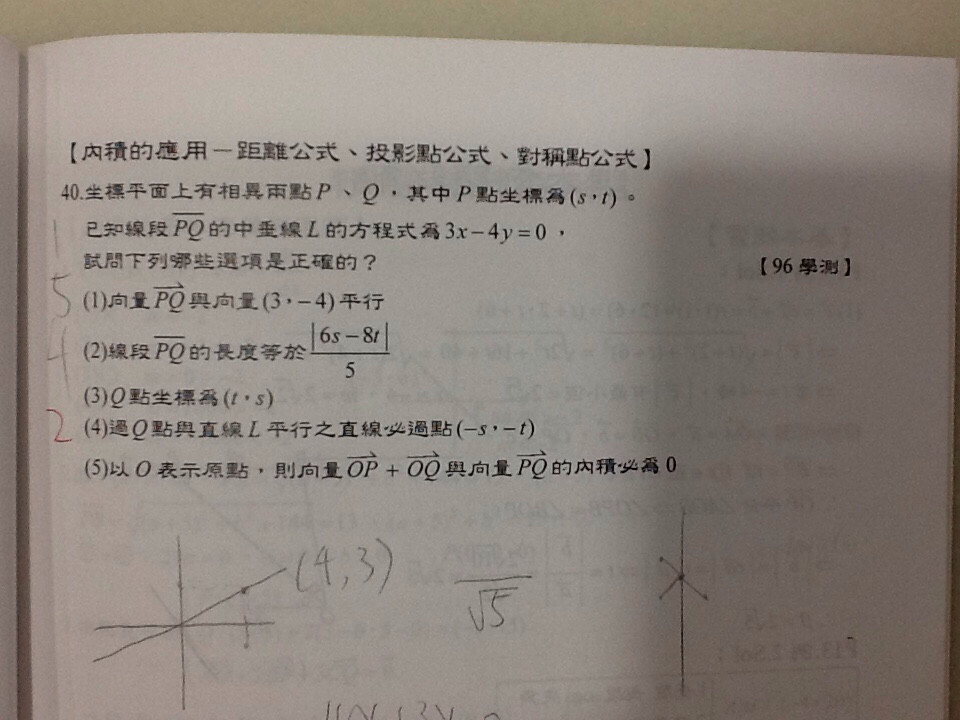 【內積的應用－距離公式、投影點公式、對稱點公式】
40.坐標平面上有相異兩點P、Q，其中P點坐標為(s，t)。
已知線段PQ的中垂線L的方程式為3x－4y＝0，
試問下列哪些選項是正確的？
【96 學測】
(1)向量PQ與向量(3，－4)平行
(2)線段PQ的長度等於|6s－8t|/5
(3)Q點坐標為(t，s)
(4)過Q點與直線L平行之直線必過點(－s，－t)
(5)以O表示原點，則向量OP＋OQ與向量PQ的內積必為0
1
5
4
2
(4,3)
√5